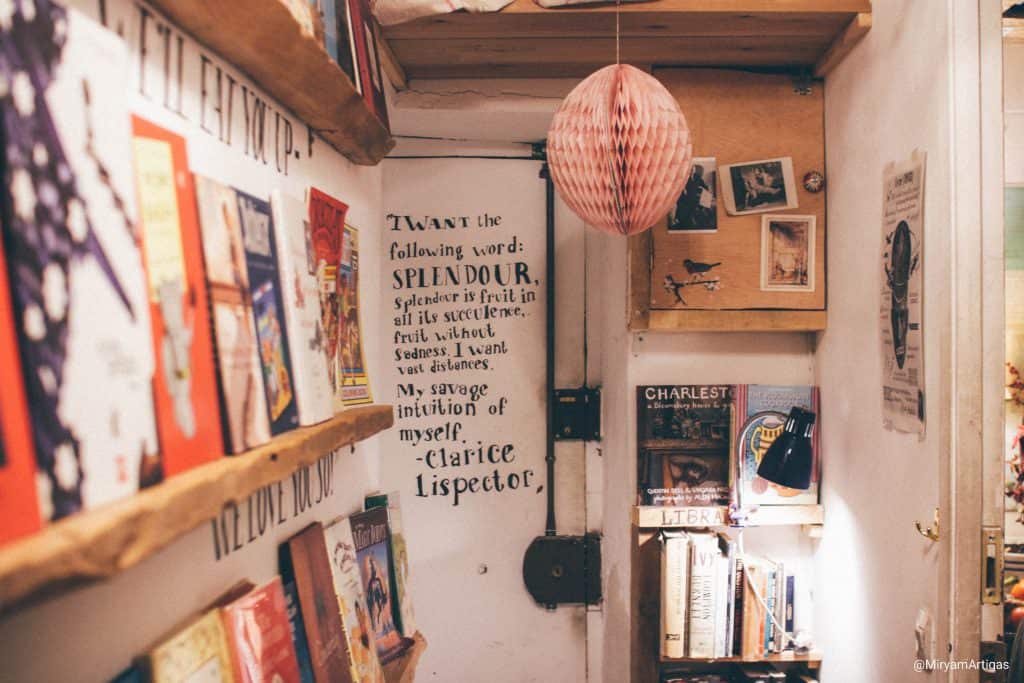 WE'LL EAT YOU UP-
WE LOVE YOU SO!
"I WANT the
following word:
SPLENDOUR,
splendour is fruit in
all its succulence,
fruit without
sadness. I want
vast distances.
My savage
intuition of
myself.
-Clarice
Lispector."
CHARLEST
a Bloomsbury house & g
LIBRA
IVY
COMPTON
BURNETT
@MiryamArtigas